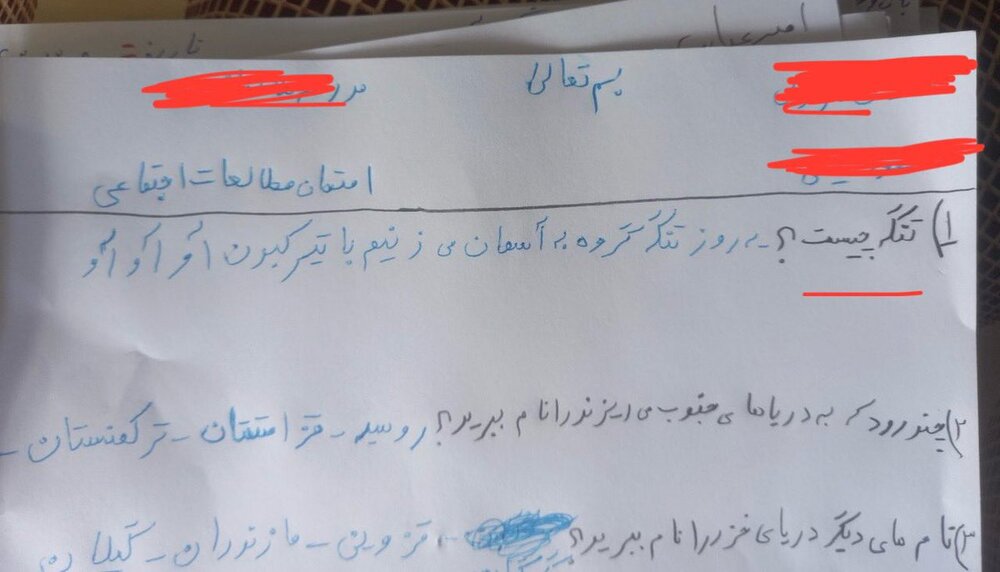 بسم تعالی
امتحان مطالعات اجتماعی
۱) تنگه چیست؟ یه روز تنگ گروه به آسمان می زنیم با تیر کمون
۲) چند رود که به دریاهای جنوب می ریزند را نام ببرید؟ روسیه - قزاقستان - ترکمنستان -
۳) نام های دیگر دریای خزر را نام ببرید؟ قزوین - مازندران - گیلان